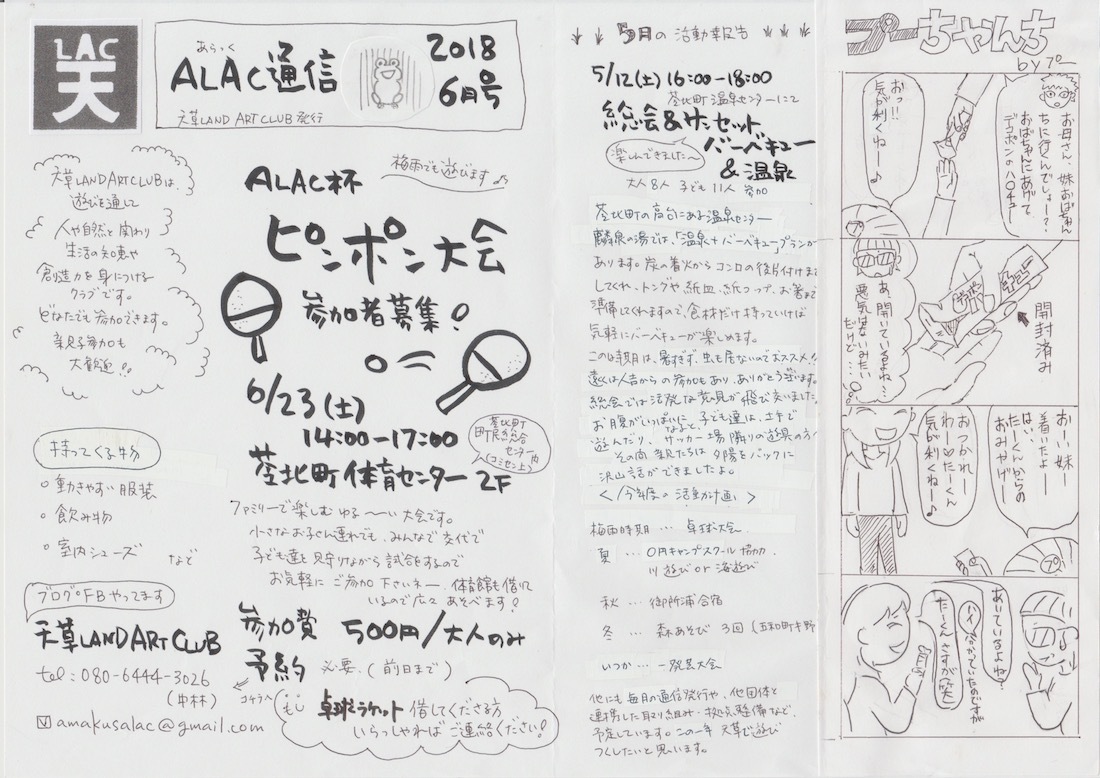 LAC
天
あらっく
ALAC通信
天草LAND ART CLUB 発行
2018
6月号
天草LANDARTCLUBは、
遊びを通して
人や自然と関わり
生活の知恵や
創造力を身につける
クラブです。
どなたでも参加できます。
親子参加も
大歓迎!!
梅雨でも遊びます♪
ALAC杯
ピンポン大会
参加者募集!
6/23(土)
14:00-17:00
苓北町
町民総合
センター内
(コミセン上)
苓北町体育センター2F
持ってくる物
・動きやすい服装
・飲み物
・室内シューズ など
ファミリーで楽しむゆる〜い大会です。
小さなお子さん連れでも、みんなで交代で
子ども達を見守りながら試合をするので
お気軽にご参加下さいネー。体育館も借りて
いるので広々あそべます!
ブログFBやってます
天草LANDARTCLUB
tel:080-6444-3026
(中林)
amakusalac@gmail.com
参加費 500円/大人のみ
予約 必要.(前日まで)
コチラへ
卓球ラケット 借してくださる方
いらっしゃればご連絡ください!
5月の活動報告
5/12(土)16:00-18:00
苓北町温泉センターにて
総会&サンセット
バーベキュー
&温泉
楽しんできました〜
大人8人 子ども11人 参加
苓北町の高台にある温泉センター
麟泉の湯では、「温泉+バーベキュープランが
あります。炭の着火からコンロの後片付けまで
してくれ、トングや紙皿、紙コップ、お箸まで
準備してくれますので、食材だけ持っていけば
気軽にバーベキューが楽しめます。
この時期は、暑すぎず、虫も居ないのでおススメ!!
遠くは人吉からの参加もあり、ありがとう座います。
総会では活発な意見が飛び交いました。
お腹がいっぱいになると、子ども達は、土手で
遊んだり、サッカー場隣りの遊具の方へ
その間 親たちは夕陽をバックに
沢山話ができましたよ。
<今年度の活動計画>
梅雨時期… 卓球大会
夏 … 0円キャンプスクール協力、
川遊びor海遊び
秋 … 御所浦合宿
冬 … 森あそび 3回(五和町手野
いつか… 一発芸大会
他にも毎月の通信発行や、他団体と
連携した取り組み・拠点整備など、
予定しています。この一年 天草で遊び
つくしたいと思います。
プーちゃんち
by プー
お母さん、妹おばちゃん
ちに行くんでしょー?
おばちゃんにあげて、
デコポンのハロチュー
おっ!!
気が利くねー♪
開封済み
あ、開いているよね?
悪気はないみたい
だけど…
おーい妹ー
着いたよー
はい、
たーくんからの
おみやげー
おつかれー
わー♡たーくん
気が利くねー♪
プ
あいているよね?
ハイ、気がついていたのですが
たーくんさすがだ